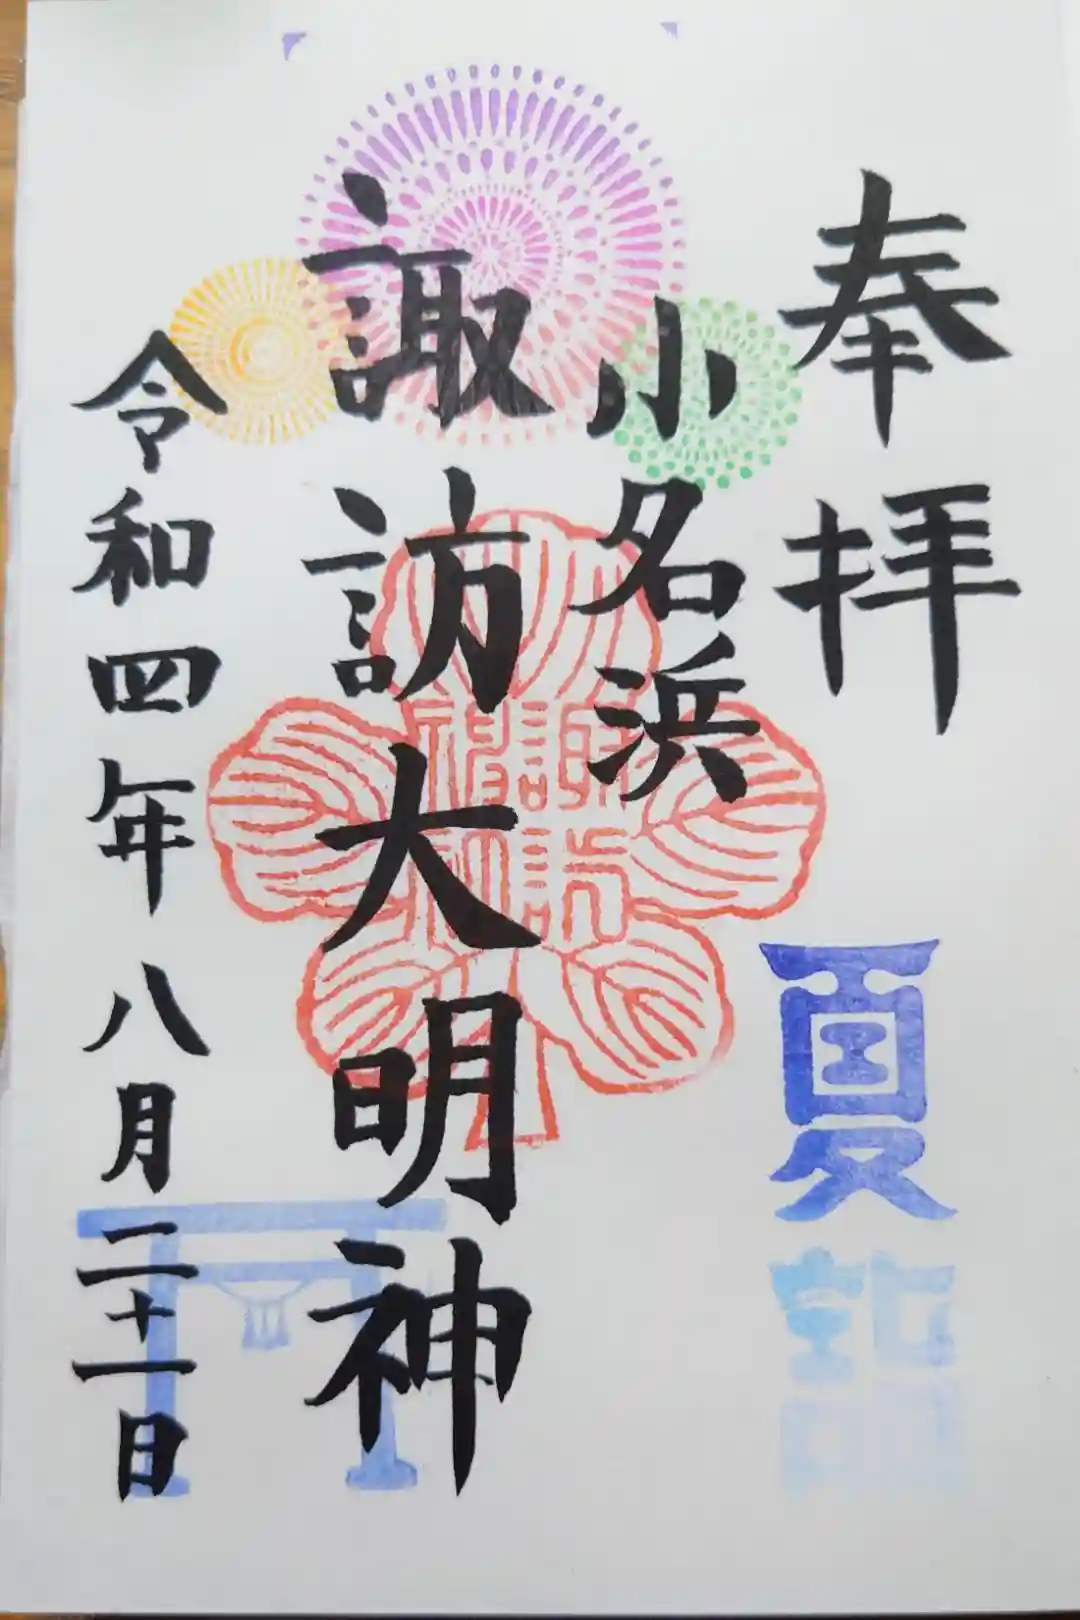 奉拝
夏詣
小名浜
諏訪大明神
諏訪
神神
令和四年八月二十一日